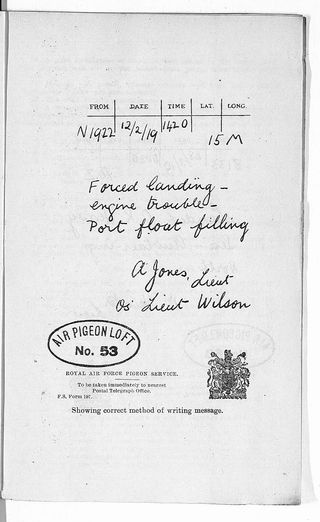 FROM DATE TIME LAT. LONG.
N1922 12/2/19 1420 15 M
Forced landing -
engine trouble -
Port float filling
A Jones, Lieut
Os Lieut Wilson
AIR PIGEON LOFT
No. 53
ROYAL AIR FORCE PIGEON SERVICE.
To be taken immediately to nearest
Postal Telegraph Office.
F.S. Form 197.
Showing correct method of writing message.